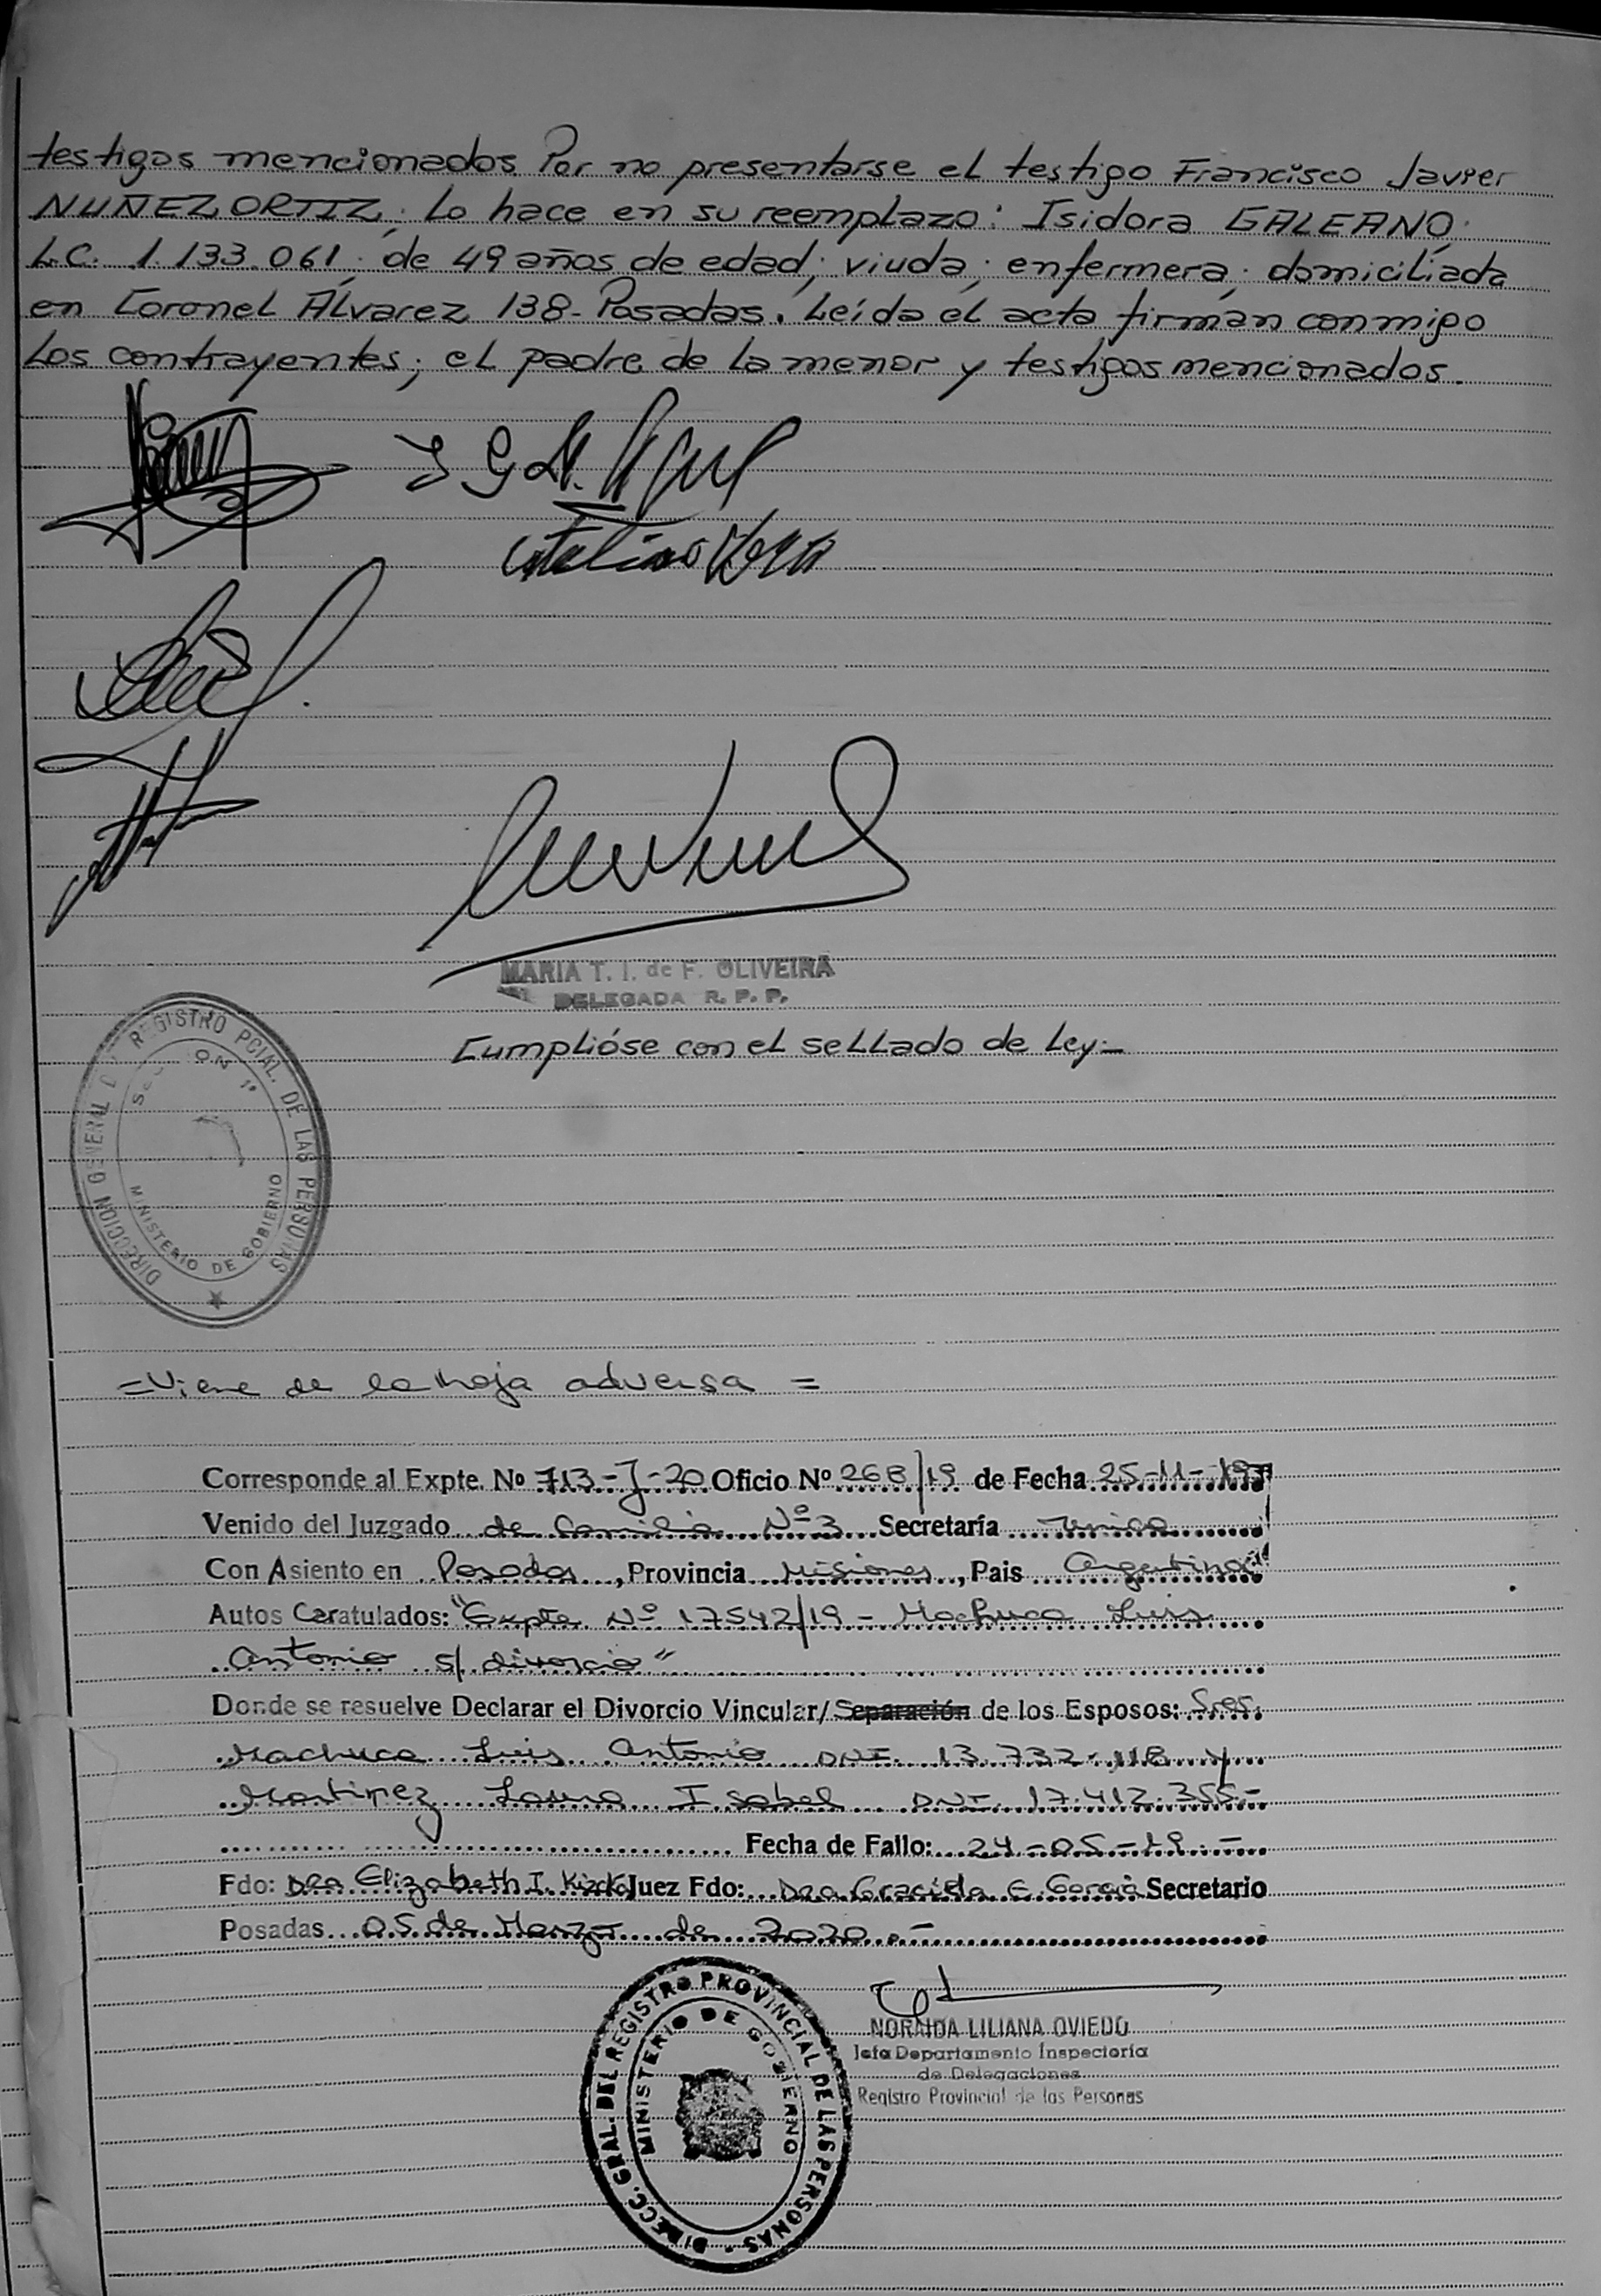 testigos mencionados. Por no presentarse el testigo Francisco Javier
NUÑEZ ORTIZ; Lo hace en su reemplazo: Isidora GALEANO;
L.C. 1.133.061; de 49 años de edad; viuda; enfermera; domiciliada
en Coronel Álvarez 138- Posadas. Leída el acta firman conmigo
Los contrayentes; el padre de la menor y testigos mencionados.
MARIA T. I. de F. OLIVEIRA
DELEGADA R. P. P.
Cumplióse con el sellado de Ley.-
DIRECCION GENERAL DEL REGISTRO PCIAL. DE LAS PERSONAS
SECCION 1º
MINISTERIO DE GOBIERNO
=Viene de la hoja adversa =
Corresponde al Expte. Nº 713-J-20 Oficio Nº 268/19 de Fecha 25-11-19
Venido del Juzgado de Familia Nº3 Secretaría Unica
Con Asiento en Posadas, Provincia Misiones, Pais Argentina
Autos Caratulados: "Expte. Nº 17542/19 - Machuca Luis
Antonio s/ divorcio"
Donde se resuelve Declarar el Divorcio Vincular/Separación de los Esposos: Sres.
Machuca Luis Antonio DNI. 13.732.118 y
Martinez Laura Isabel DNI. 17.412.355-
Fecha de Fallo: 24-05-19.-
Fdo: Dra Elizabeth I. Juez Fdo: Dra Graciela E Garcia Secretario
Posadas 05 de Marzo de 2020.-
NORAIDA LILIANA OVIEDO
Jefa Departamento Inspectoría
de Delegaciones
Registro Provincial de las Personas
DIRECC. GRAL. DEL REGISTRO PROVINCIAL DE LAS PERSONAS -
MINISTERIO DE GOBIERNO